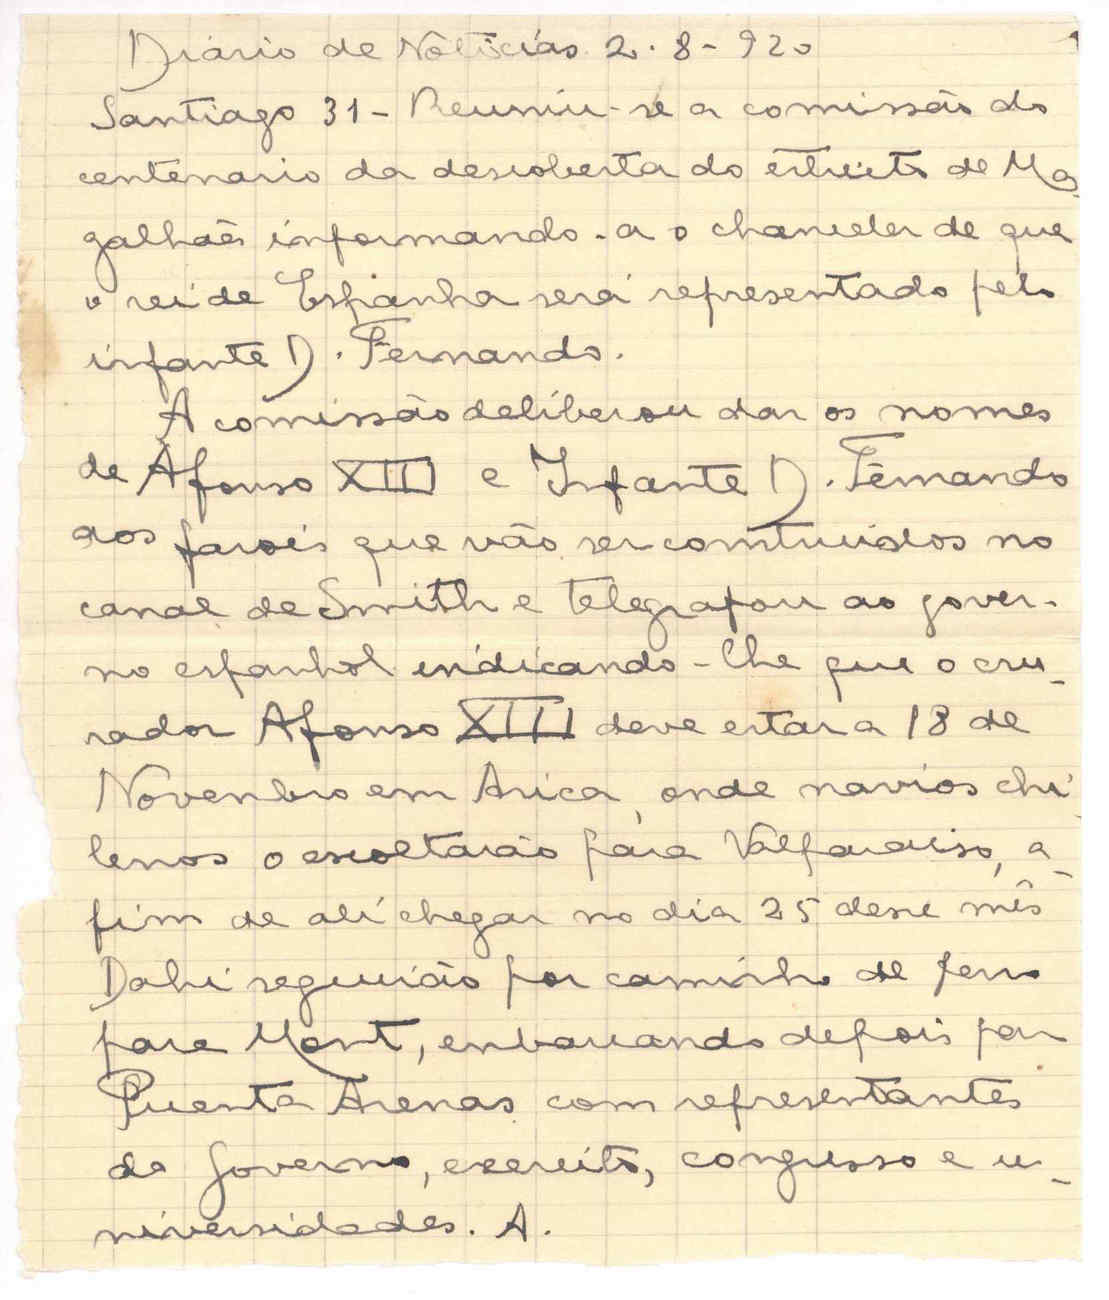 Diário de Nóticias 2-8-920
Santiago 31 - Reuniu-se a comissão do
centenario da descoberta do estreito de Ma-
galhães informando-a o chanceler de que
o rei de Espanha será representado pelo
infante D. Fernando.
A comissão deliberou dar os nomes
de Afonso XIII e Infante D. Fernando
aos farois que vão ser construidos no
canal de Smith e telegrafou ao gover-
no espanhol indicando-lhe que o cru-
zador Afonso XIII deve estar a 18 de
Novenbro em Arica, onde navios chi-
lenos o escoltarão para Valparaiso, a-
fim de ali chegar no dia 25 dese mês
Dahi seguirão por caminho de ferro
para Mont, enbarcando depois por
Puenta Arenas com representantes
do Governo, exercito, congresso e u-
niversidades. A.